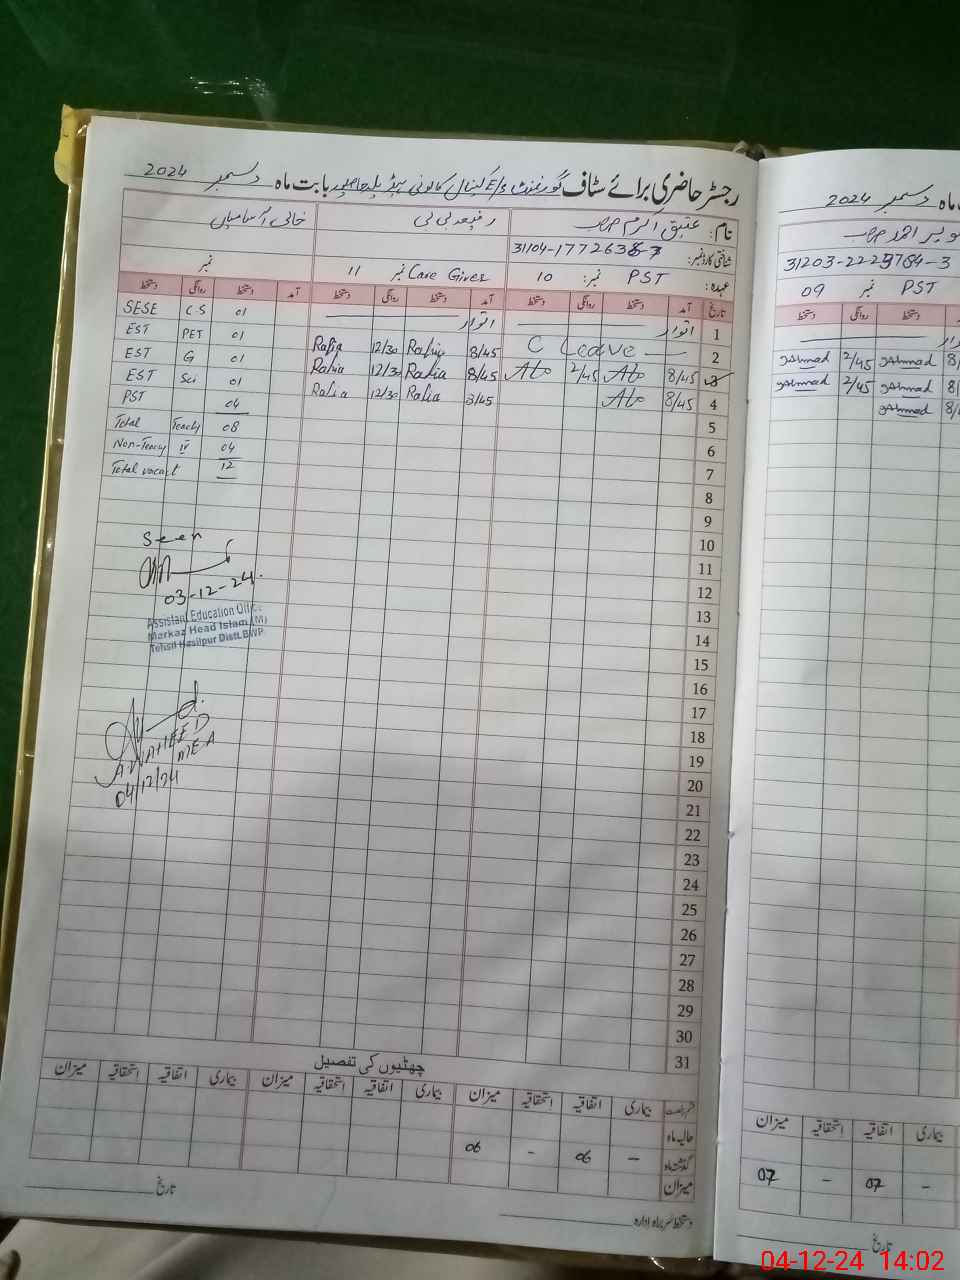 رجسٹر حاضری برائے سٹاف گورنمنٹ E/S کینال کالونی ہیڈ بابت ماہ دسمبر 2024
نام: عتیق اکرم
رفیعہ بی بی
خالی آسامیاں
شناختی کارڈ نمبر: 31104-1772636-7
عہدہ: PST نمبر: 10
Care Giver نمبر 11
نمبر
تاریخ آمد دستخط روانگی دستخط آمد دستخط روانگی دستخط آمد دستخط روانگی دستخط
1 اتوار اتوار SESE C.S 01
2 C Leave 8/45 Rafia 12/30 Rafia EST PET 01
3 8/45 Ato 2/45 Ato 8/45 Rafia 12/30 Rafia EST G 01
4 8/45 Ato 8/45 Rafia 12/30 Rafia EST Sci 01
5 PST 04
6 Total Teach 08
7 Non-Teach IV 04
8 Total vacant 12
9
10
11
12
13
14
15
16
17
18
19
20
21
22
23
24
25
26
27
28
29
30
31
Seen
03-12-24.
Assistant Education Office
Markaz Head Islam (M)
Tehsil Hasilpur Distt.BWP
A WAHEED
MEA
04/12/24
چھٹیوں کی تفصیل
بیماری اتفاقیہ استحقاقیہ میزان بیماری اتفاقیہ استحقاقیہ میزان بیماری اتفاقیہ استحقاقیہ میزان
حالیہ ماہ
گذشتہ ماہ - 06 - 06
میزان
دستخط سربراہ ادارہ
تاریخ
ماہ دسمبر 2024
احمد
31203-2229784-3
PST نمبر 09
دستخط روانگی دستخط
2/45 Ahmad Ahmad
2/45 Ahmad Ahmad
Ahmad
بیماری اتفاقیہ استحقاقیہ میزان
- 07 - 07
تاریخ
04-12-24 14:02